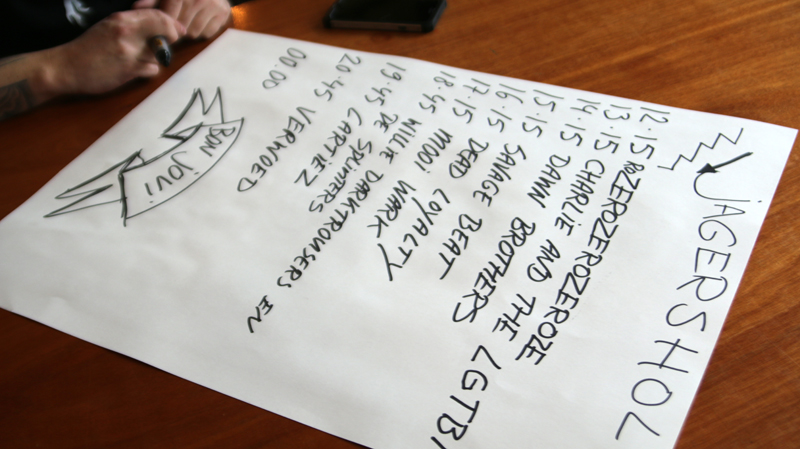 JAGERSHOL
12.15 ROZEROZEROZEROZE
13.15 CHARLIE AND THE LGTB
14.15 DAWN BROTHERS
15.15 SAVAGE BEAT
16.15 DEAD LOYALTY
17.15 MOOI WARK
18.45 WILLIE DARKTROUSERS EN
DE SPLINTERS
19.45 CARTIEZ
20.45 VERWOED
00.00
BON JOVI